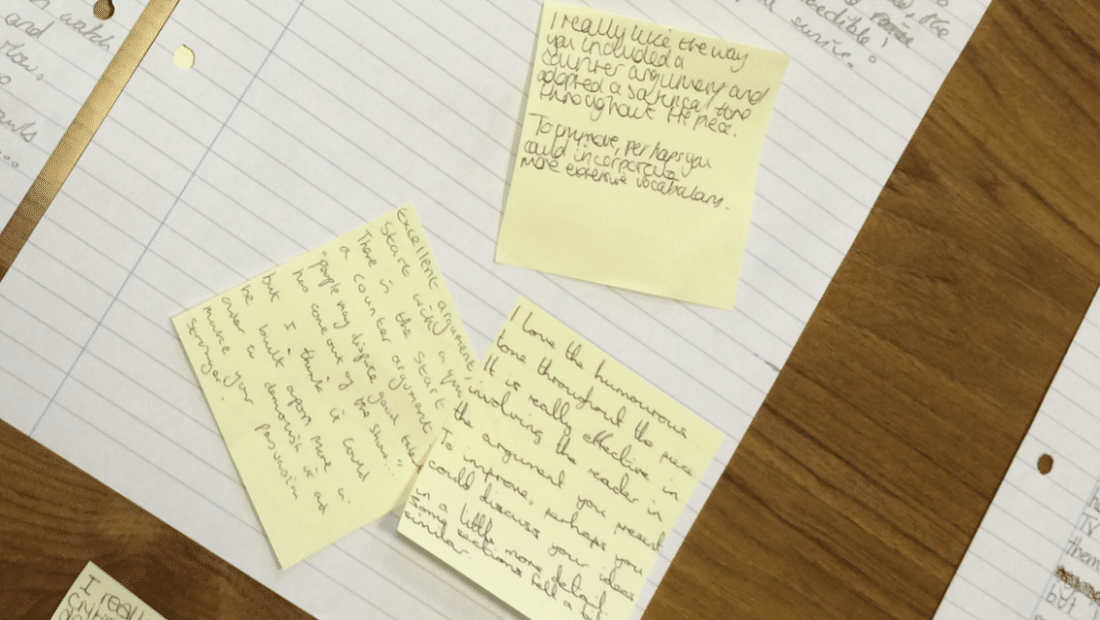 I really like the way
you included a
counter argument and
adopted a satirical tone
throughout the piece.
To improve, perhaps you
could incorporate
more extensive vocabulary.
Excellent argument,
start with a
There is the start
a counter argument
"people may dispute good
has come out of the show..."
but I think it could
be built upon more in
order to demolish it and
make your persuasion
stronger.
I love the humourous
tone throughout the piece
It is really effective in
involving the reader in
the argument you present
To improve, perhaps you
could discuss your ideas
in a little more detail.
Some sections fell a
similar.
I really
watch
and
survive.
them
but